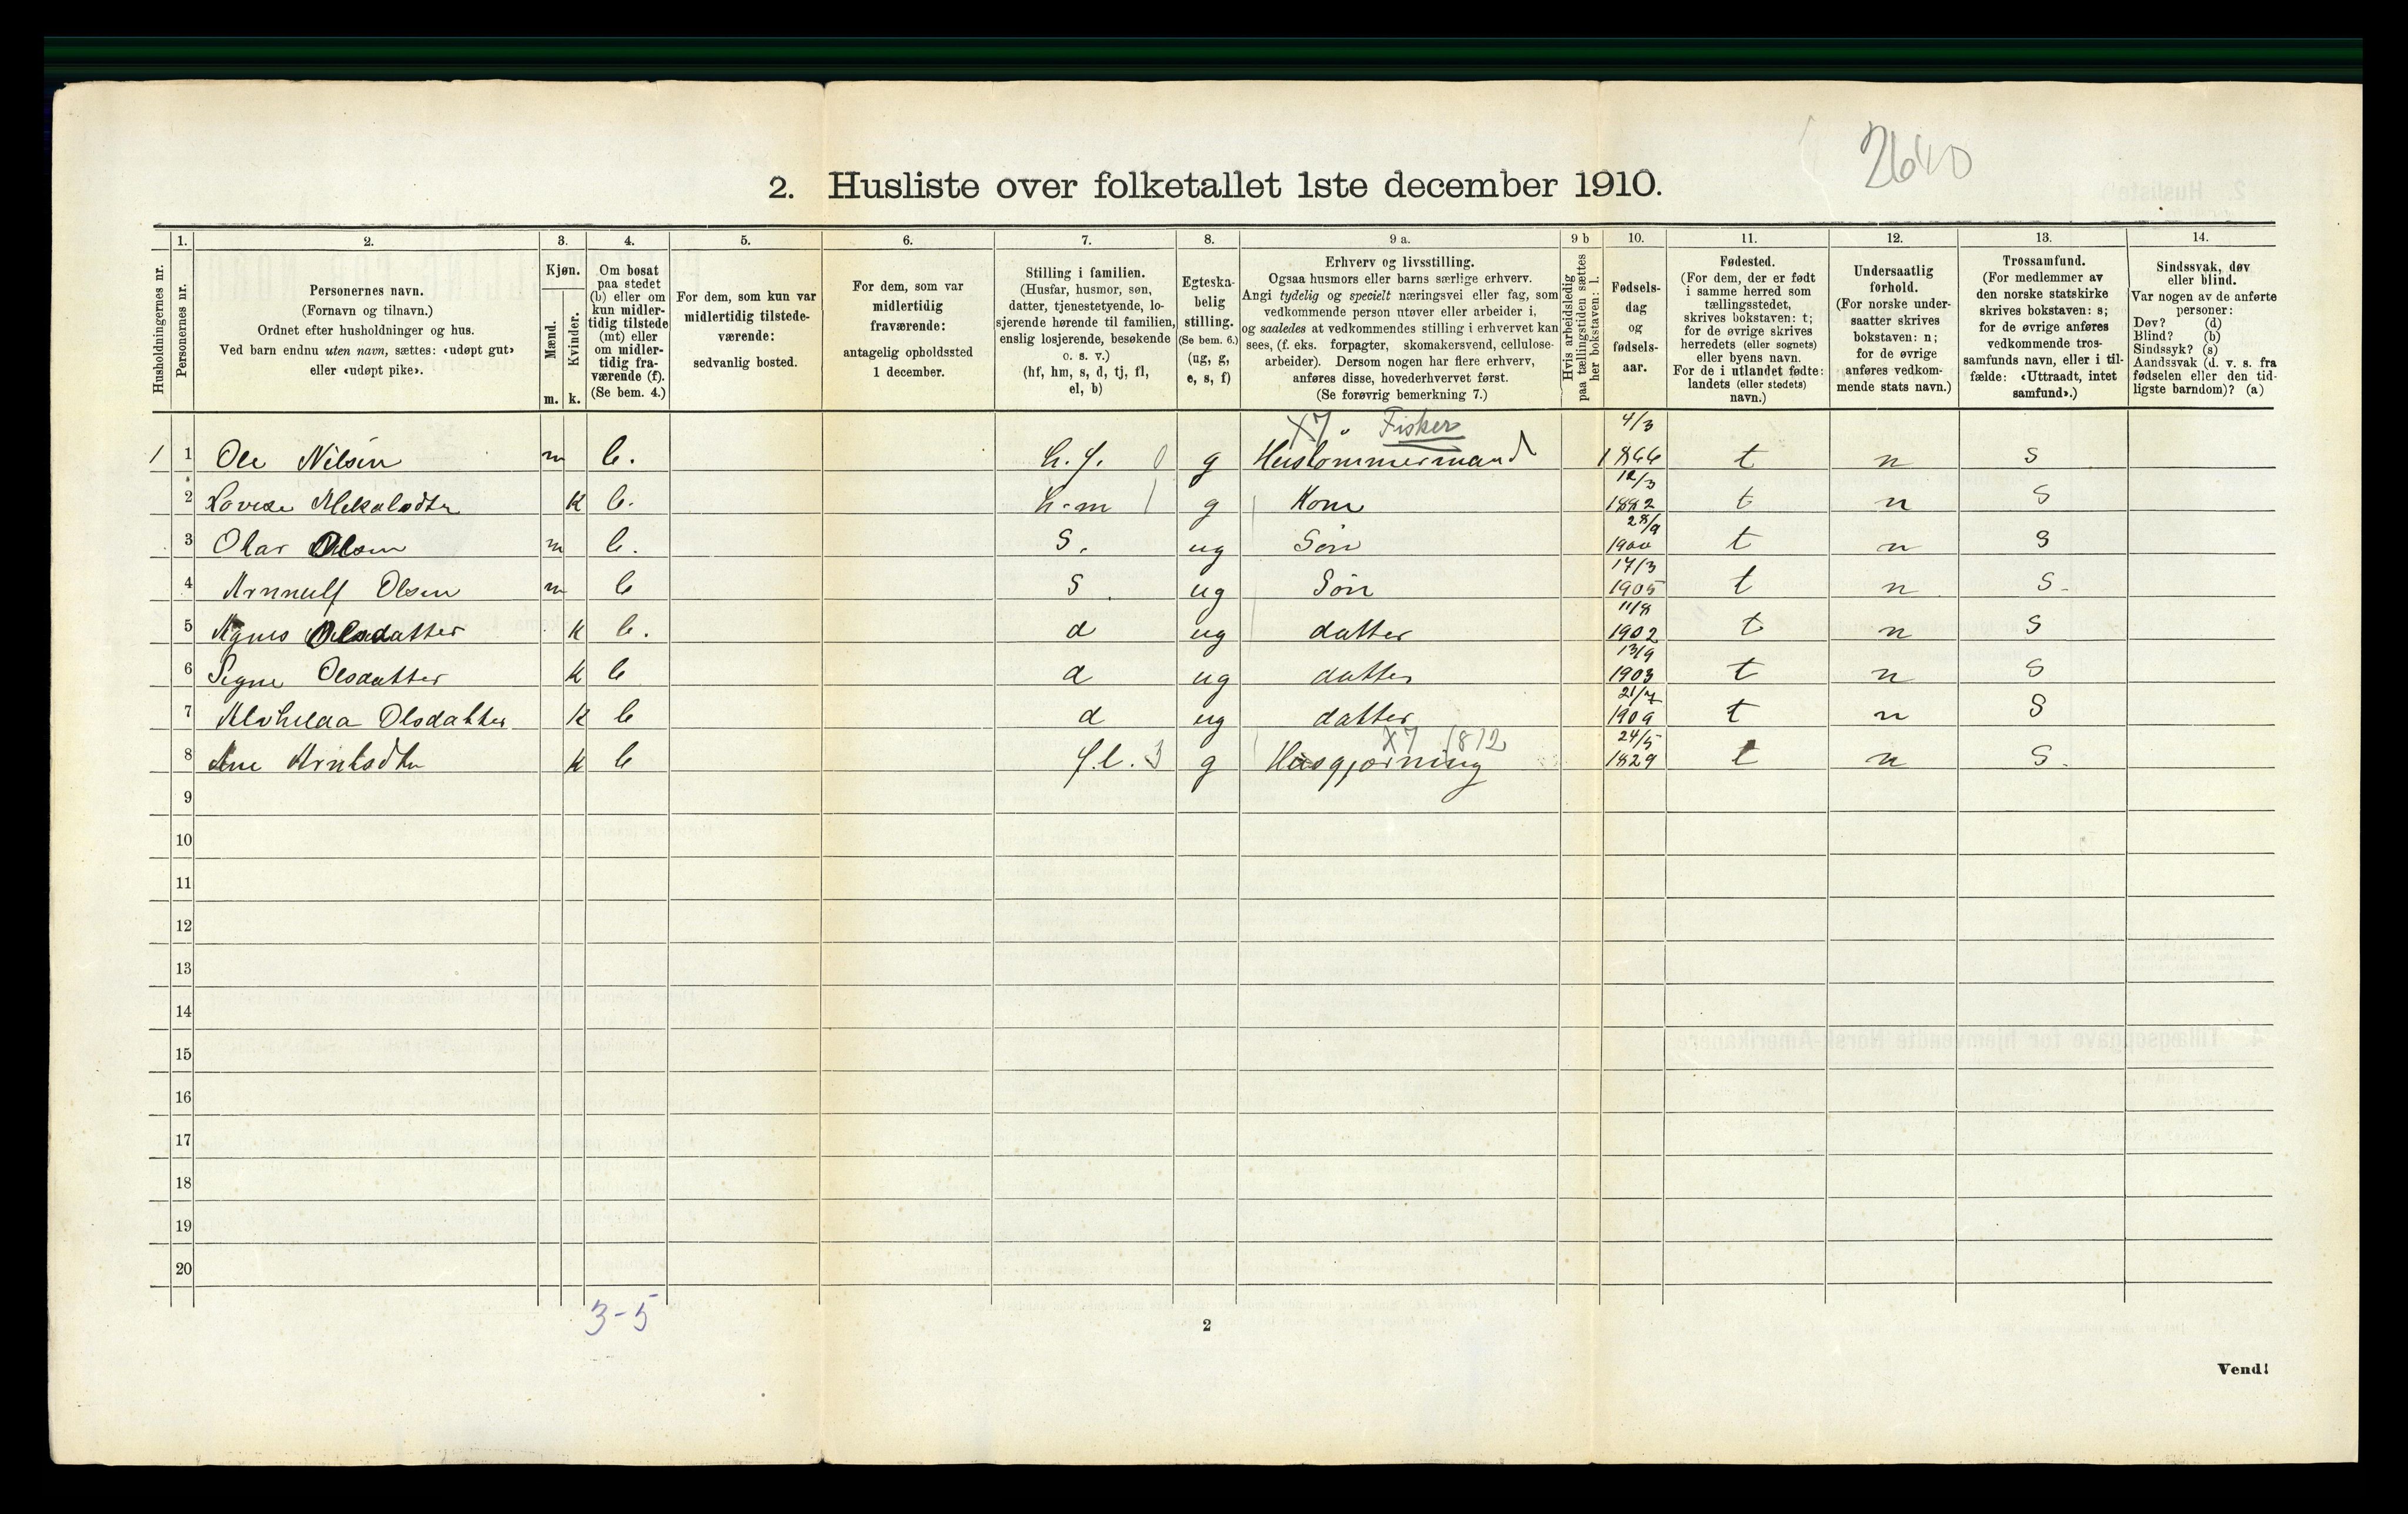 2640
2. Husliste over folketallet 1ste december 1910.
Husholdningernes nr.
1.
Personernes nr.
2.
Personernes navn.
(Fornavn og tilnavn.)
Ordnet efter husholdninger og hus.
Ved barn endnu uten navn, sættes: «udøpt gut»
eller «udøpt pike».
3.
Kjøn.
Mænd.
m.
Kvinder.
k.
4.
Om bosat
paa stedet
(b) eller om
kun midler-
tidig tilstede
(mt) eller
om midler-
tidig fra-
værende (f).
(Se bem. 4.)
5.
For dem, som kun var
midlertidig tilstede-
værende:
sedvanlig bosted.
6.
For dem, som var
midlertidig
fraværende:
antagelig opholdssted
1 december.
7.
Stilling i familien.
(Husfar, husmor, søn,
datter, tjenestetyende, lo-
sjerende hørende til familien,
enslig losjerende, besøkende
o. s. v.)
(hf, hm, s, d, tj, fl,
el, b)
8.
Egteska-
belig
stilling.
(Se bem. 6.)
(ug, g,
e, s, f)
9 a.
Erhverv og livsstilling.
Ogsaa husmors eller barns særlige erhverv.
Angi tydelig og specielt næringsvei eller fag, som
vedkommende person utøver eller arbeider i,
og saaledes at vedkommendes stilling i erhvervet kan
sees, (f. eks. forpagter, skomakersvend, cellulose-
arbeider). Dersom nogen har flere erhverv,
anføres disse, hovederhvervet først.
(Se forøvrig bemerkning 7.)
9 b
Hvis arbeidsledig
paa tællingstiden sættes
her bokstaven: l.
10.
Fødsels-
dag
og
fødsels-
aar.
11.
Fødested.
(For dem, der er født
i samme herred som
tællingsstedet,
skrives bokstaven: t;
for de øvrige skrives
herredets (eller sognets)
eller byens navn.
For de i utlandet fødte:
landets (eller stedets)
navn.)
12.
Undersaatlig
forhold.
(For norske under-
saatter skrives
bokstaven: n;
for de øvrige
anføres vedkom-
mende stats navn.)
13.
Trossamfund.
(For medlemmer av
den norske statskirke
skrives bokstaven: s;
for de øvrige anføres
vedkommende tros-
samfunds navn, eller i til-
fælde: «Uttraadt, intet
samfund».)
14.
Sindssvak, døv
eller blind.
Var nogen av de anførte
personer:
Døv? (d)
Blind? (b)
Sindssyk? (s)
Aandssvak (d. v. s. fra
fødselen eller den tid-
ligste barndom)? (a)
X7 Fisker 4/3
1 1 Ole Nilsen m b. h.f. 0 g Hustømmermand 1866 t n s
12/3
2 Lovise k b. h-m g Kone 1882 t n s
28/9
3 Olar Olsen m b. S. ug Søn 1900 t n s
17/3
4 Arnnulf Olsen m b S. ug Søn 1905 t n s.
11/8
5 Agnes Olsdatter k b. d ug datter 1902 t n s
13/9
6 Signe Olsdatter k b d ug datter 1903 t n s
21/7
7 Olsdatter k b d ug datter 1909 t n s
X7 1812 24/5
8 Ane k b f.l. 3 g Husgjørning 1829 t n s.
9
10
11
12
13
14
15
16
17
18
19
20
3-5
2
Vend!